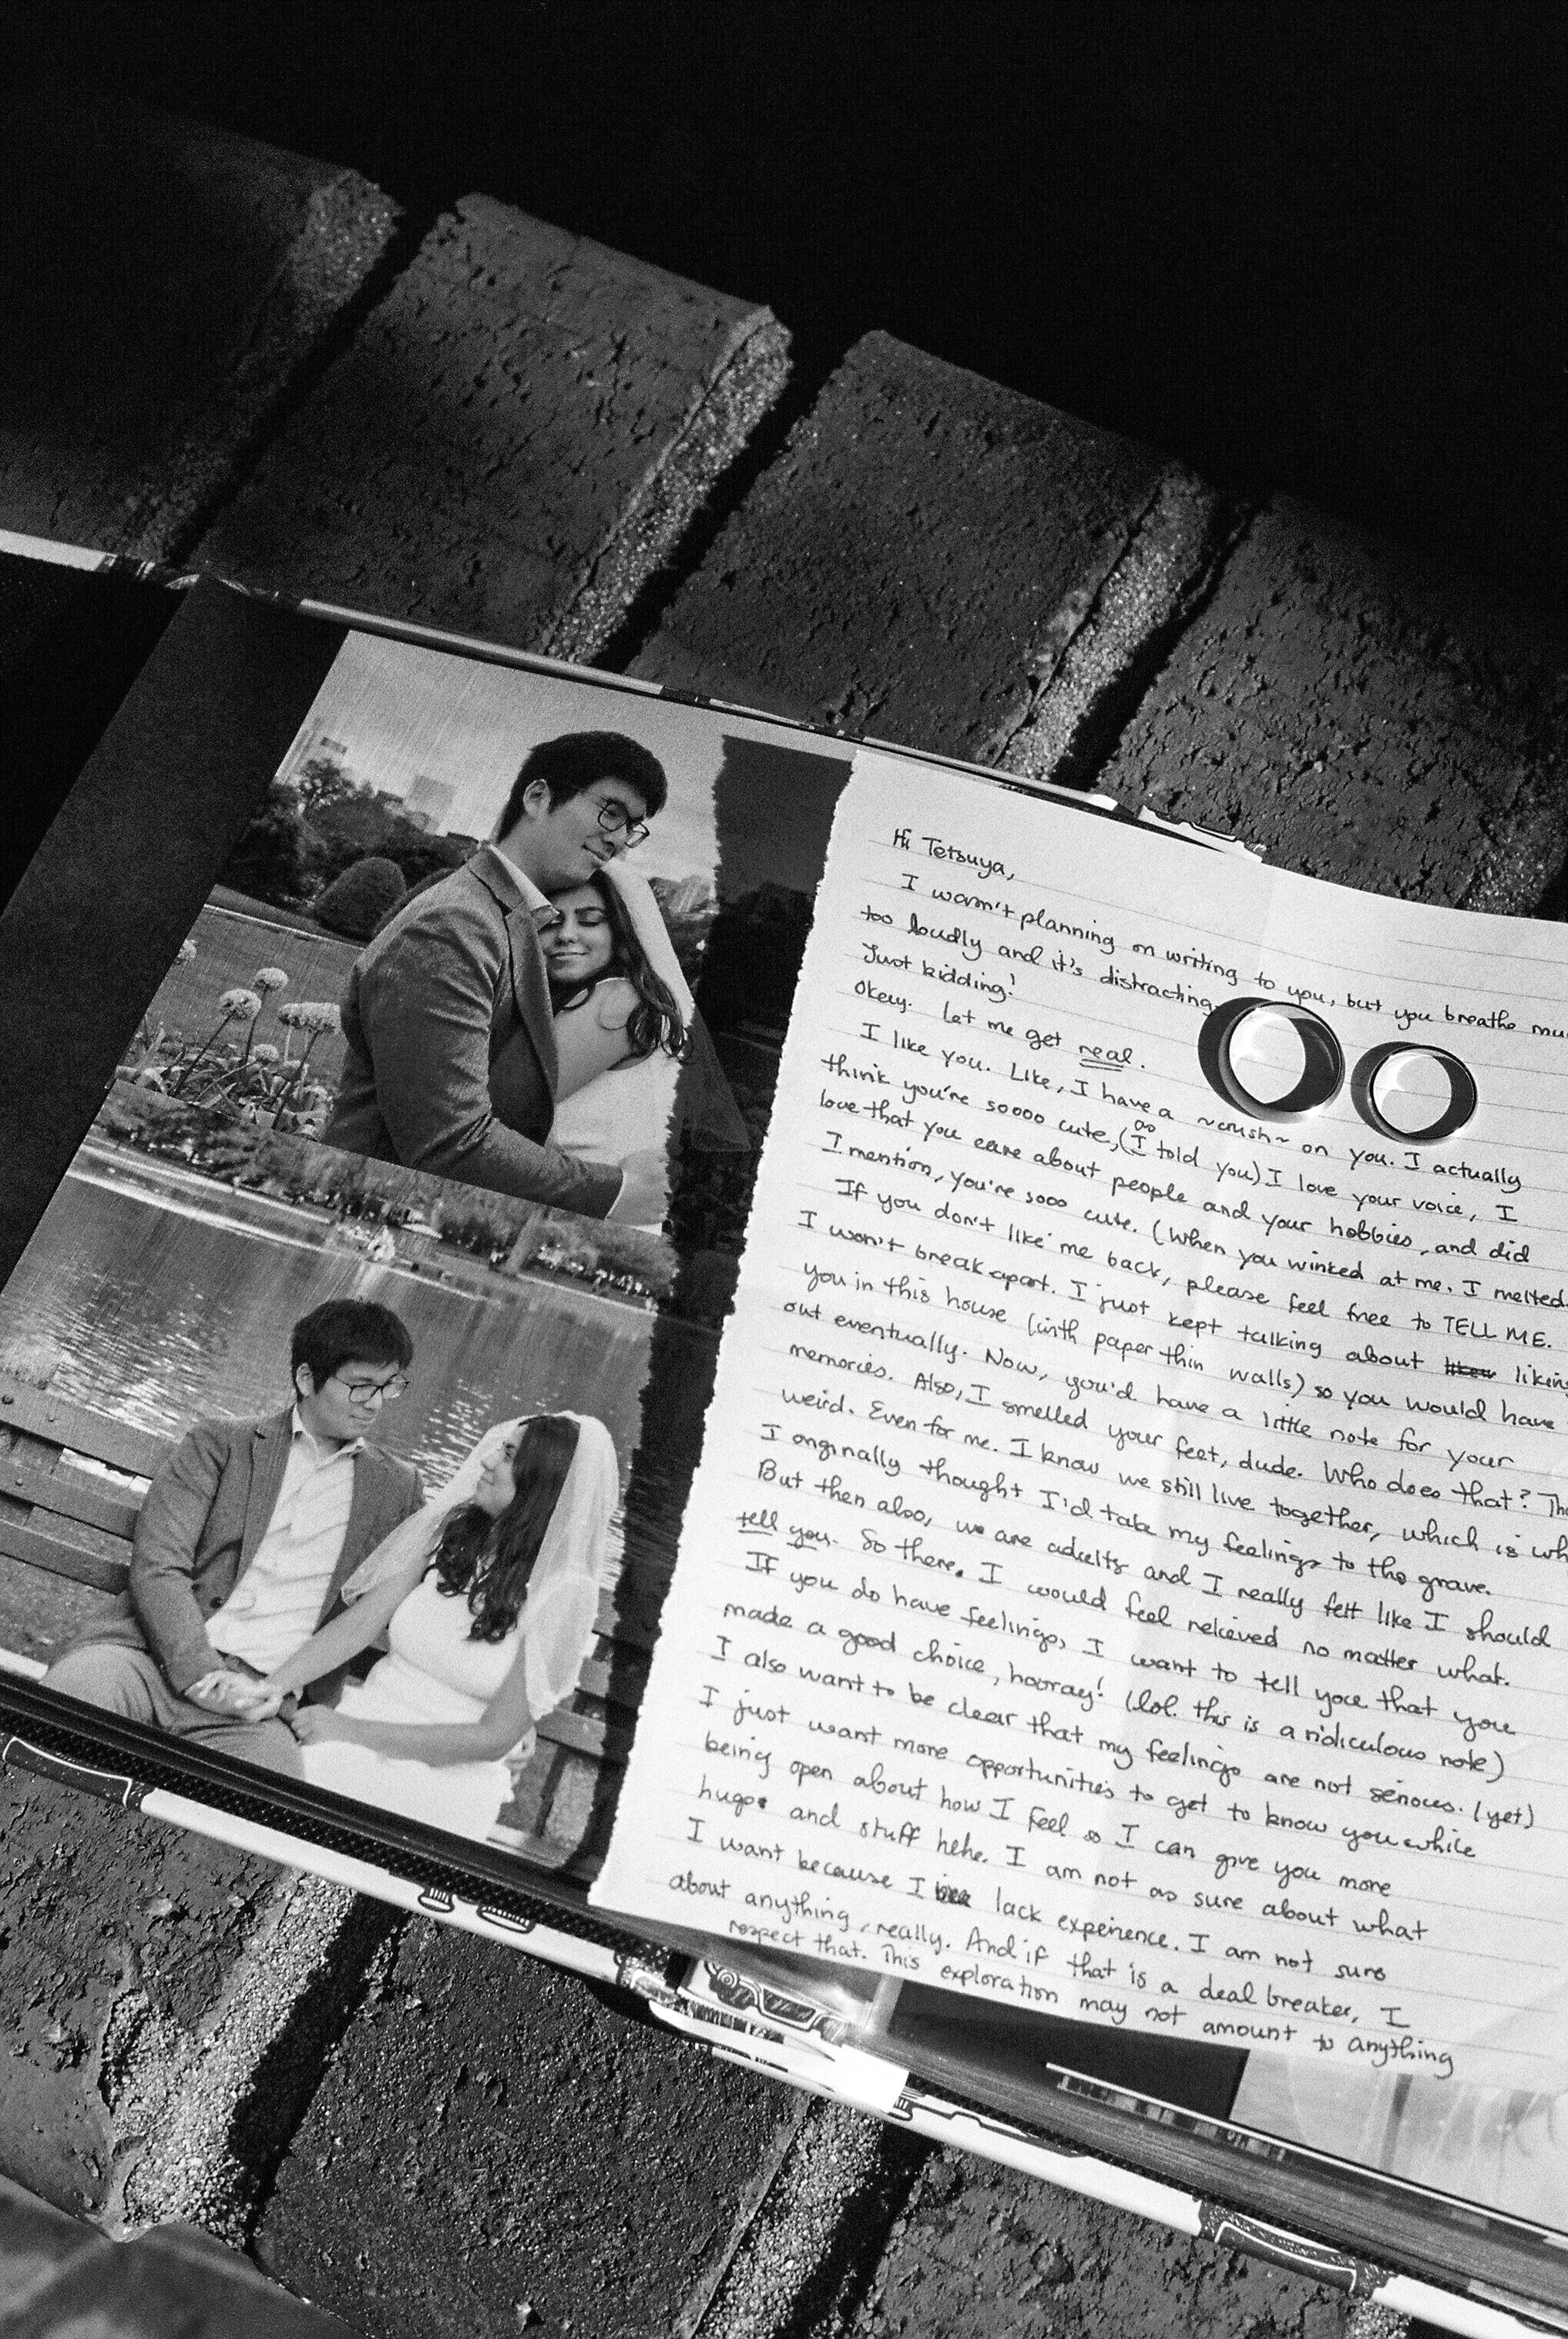 Hi Tetsuya,
I wasn't planning on writing to you, but you breathe
too loudly and it's distracting.
Just kidding!
Okay. Let me get real.
I like you. Like, I have a ~crush~ on you. I actually
think you're soooo cute, (as I told you) I love your voice, I
love that you care about people and your hobbies, and did
I mention, you're sooo cute. (When you winked at me, I melted.
If you don't like me back, please feel free to TELL ME.
I won't break apart. I just kept talking about liking
you in this house (with paper thin walls) so you would have
out eventually. Now, you'd have a little note for your
memories. Also, I smelled your feet, dude. Who does that?
weird. Even for me. I know we still live together, which is
I originally thought I'd take my feelings to the grave.
But then also, we are adults and I really felt like I should
tell you. So there. I would feel relieved no matter what.
If you do have feelings, I want to tell you that you
made a good choice, hooray! (lol. this is a ridiculous note)
I also want to be clear that my feelings are not serious. (yet)
I just want more opportunities to get to know you while
being open about how I feel so I can give you more
hugs and stuff hehe. I am not as sure about what
I want because I lack experience. I am not sure
about anything, really. And if that is a deal breaker, I
respect that. This exploration may not amount to anything